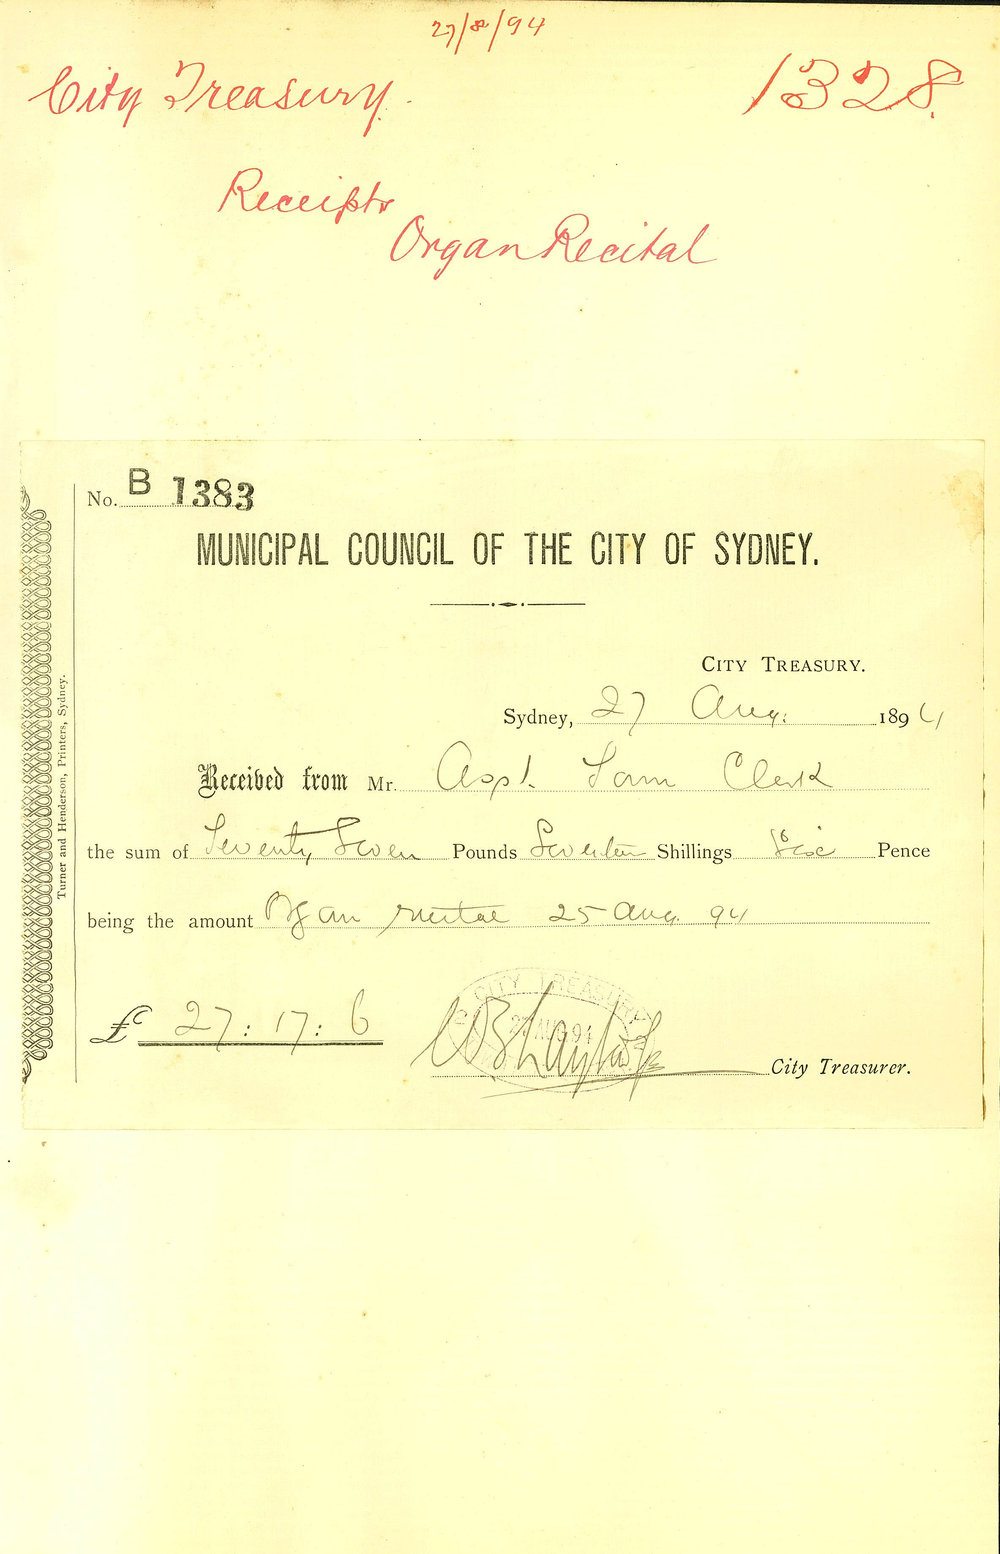 27/8/94
City Treasury.
1328.
Receipts
Organ Recital
No. B 1383
MUNICIPAL COUNCIL OF THE CITY OF SYDNEY.
CITY TREASURY.
Sydney, 27 Aug. 1894
Received from Mr. Asst. Town Clerk
the sum of Twenty Seven Pounds Seventeen Shillings Six Pence
being the amount Organ recital 25 Aug. 94
£ 27 : 17 : 6
City Treasurer.
CITY TREASURY
27 AUG 94
Turner and Henderson, Printers, Sydney.